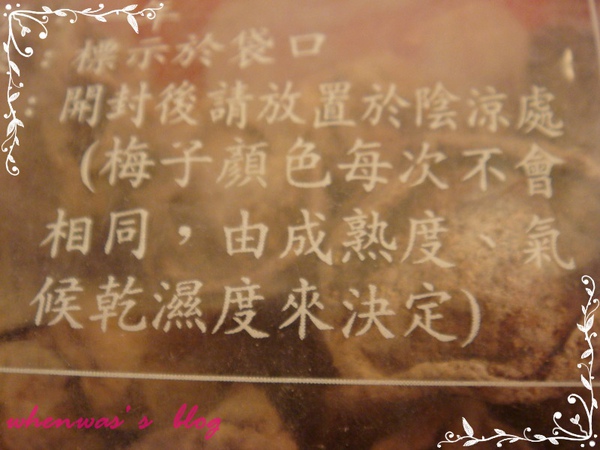 ：標示於袋口
：開封後請放置於陰涼處
(梅子顏色每次不會
相同，由成熟度、氣
候乾濕度來決定)
whenwas's blog